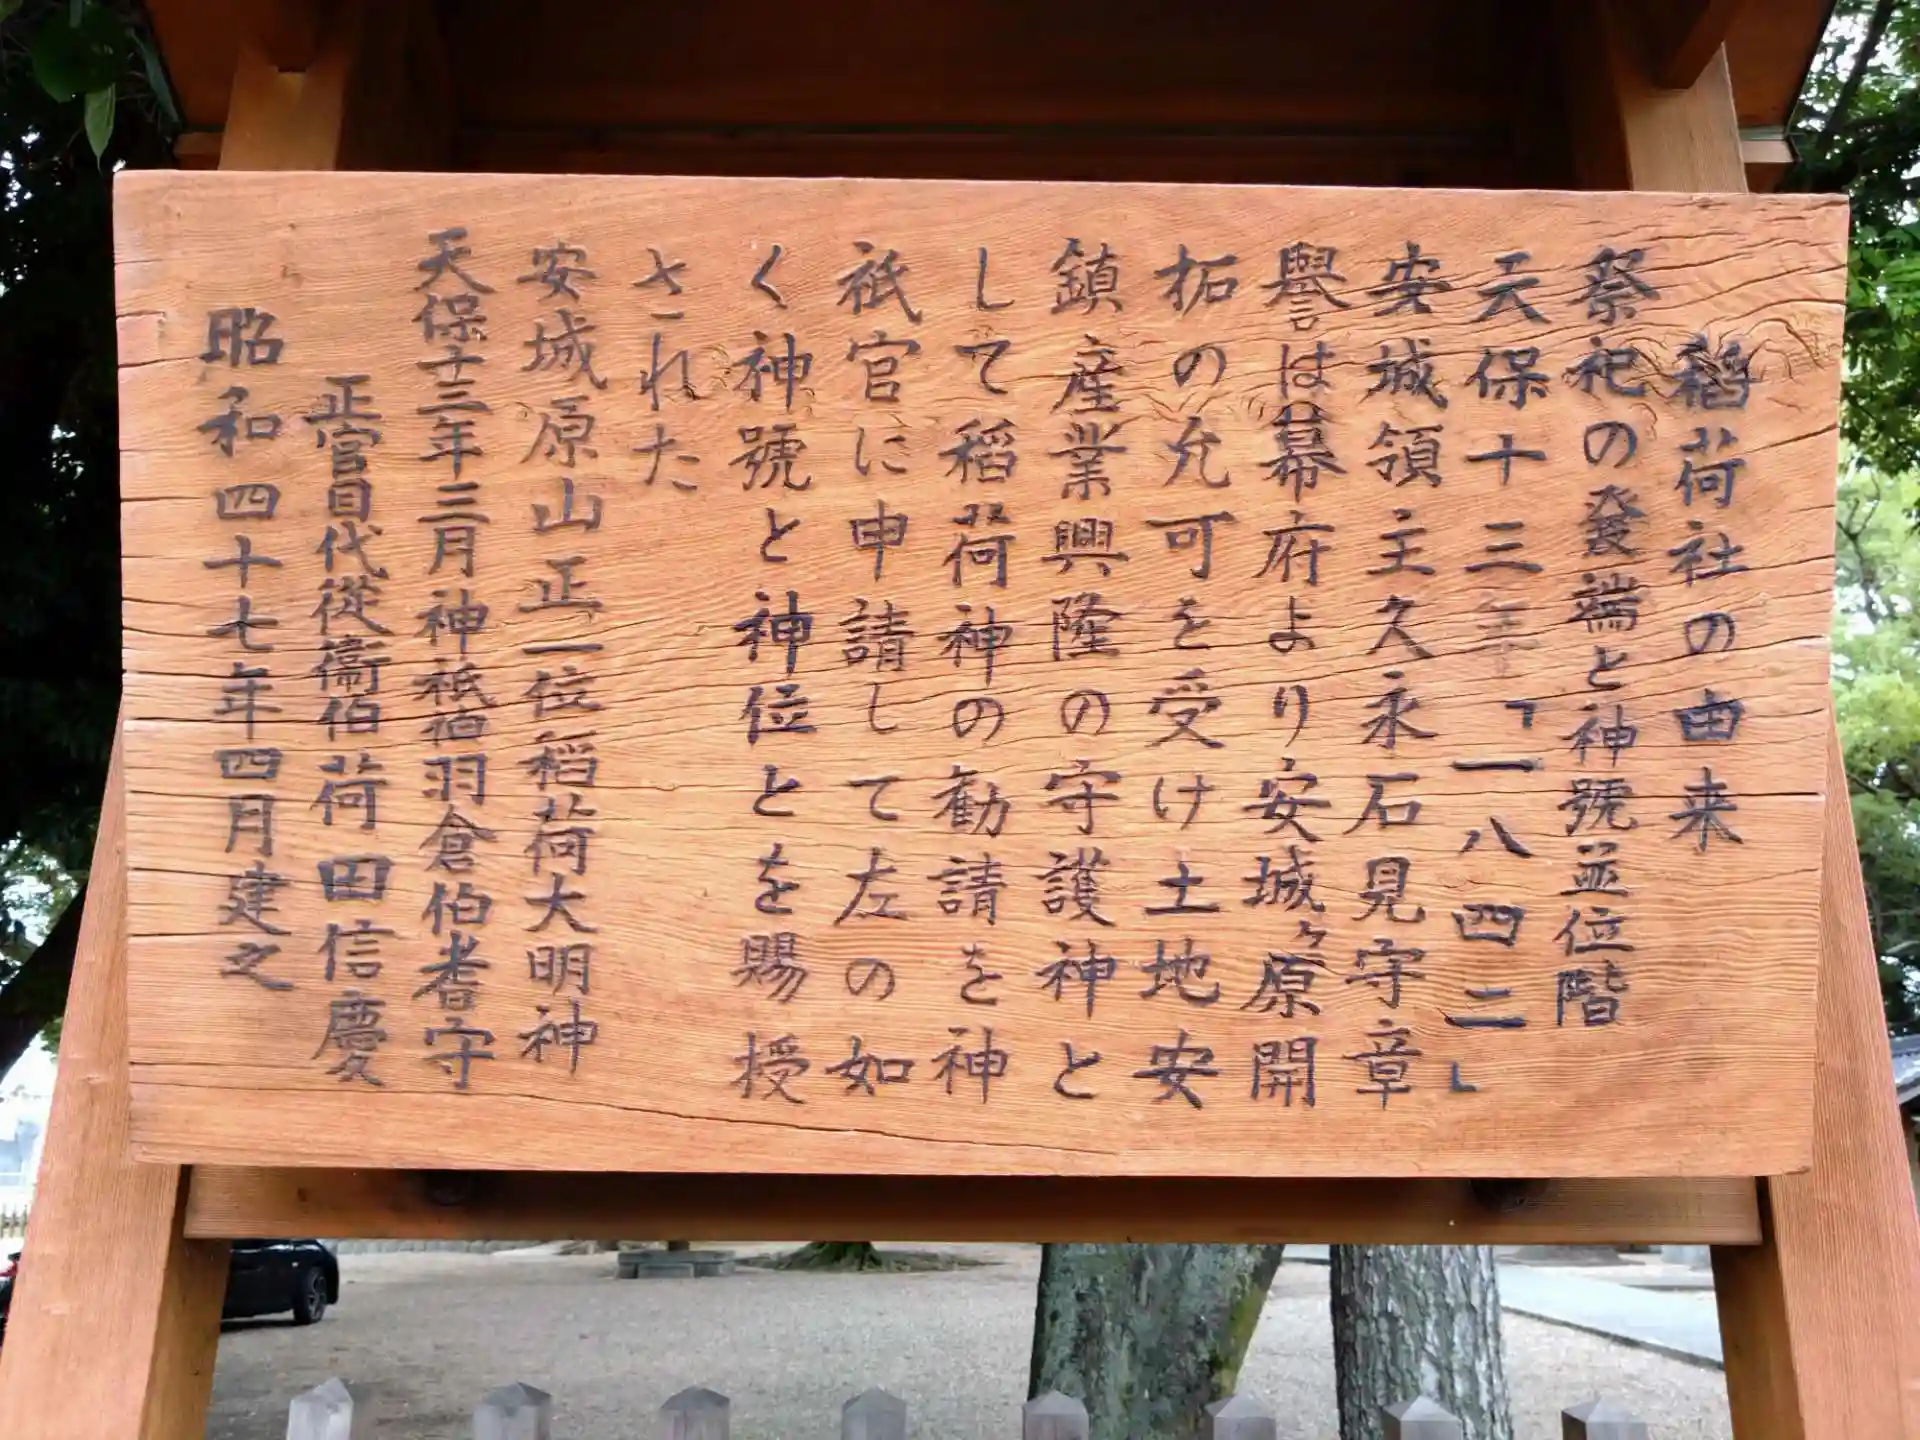 稻荷社の由来
祭祀の発端と神號並位階
天保十三年「一八四二」
安城領主久永石見守章
譽は幕府より安城ヶ原開
拓の允可を受け土地安
鎮産業興隆の守護神と
して稻荷神の勧請を神
祇官に申請して左の如
く神號と神位とを賜授
された
安城原山正一位稻荷大明神
天保十三年三月神祇伯羽倉伯耆守
正官目代従衞伯荷田信慶
昭和四十七年四月建之